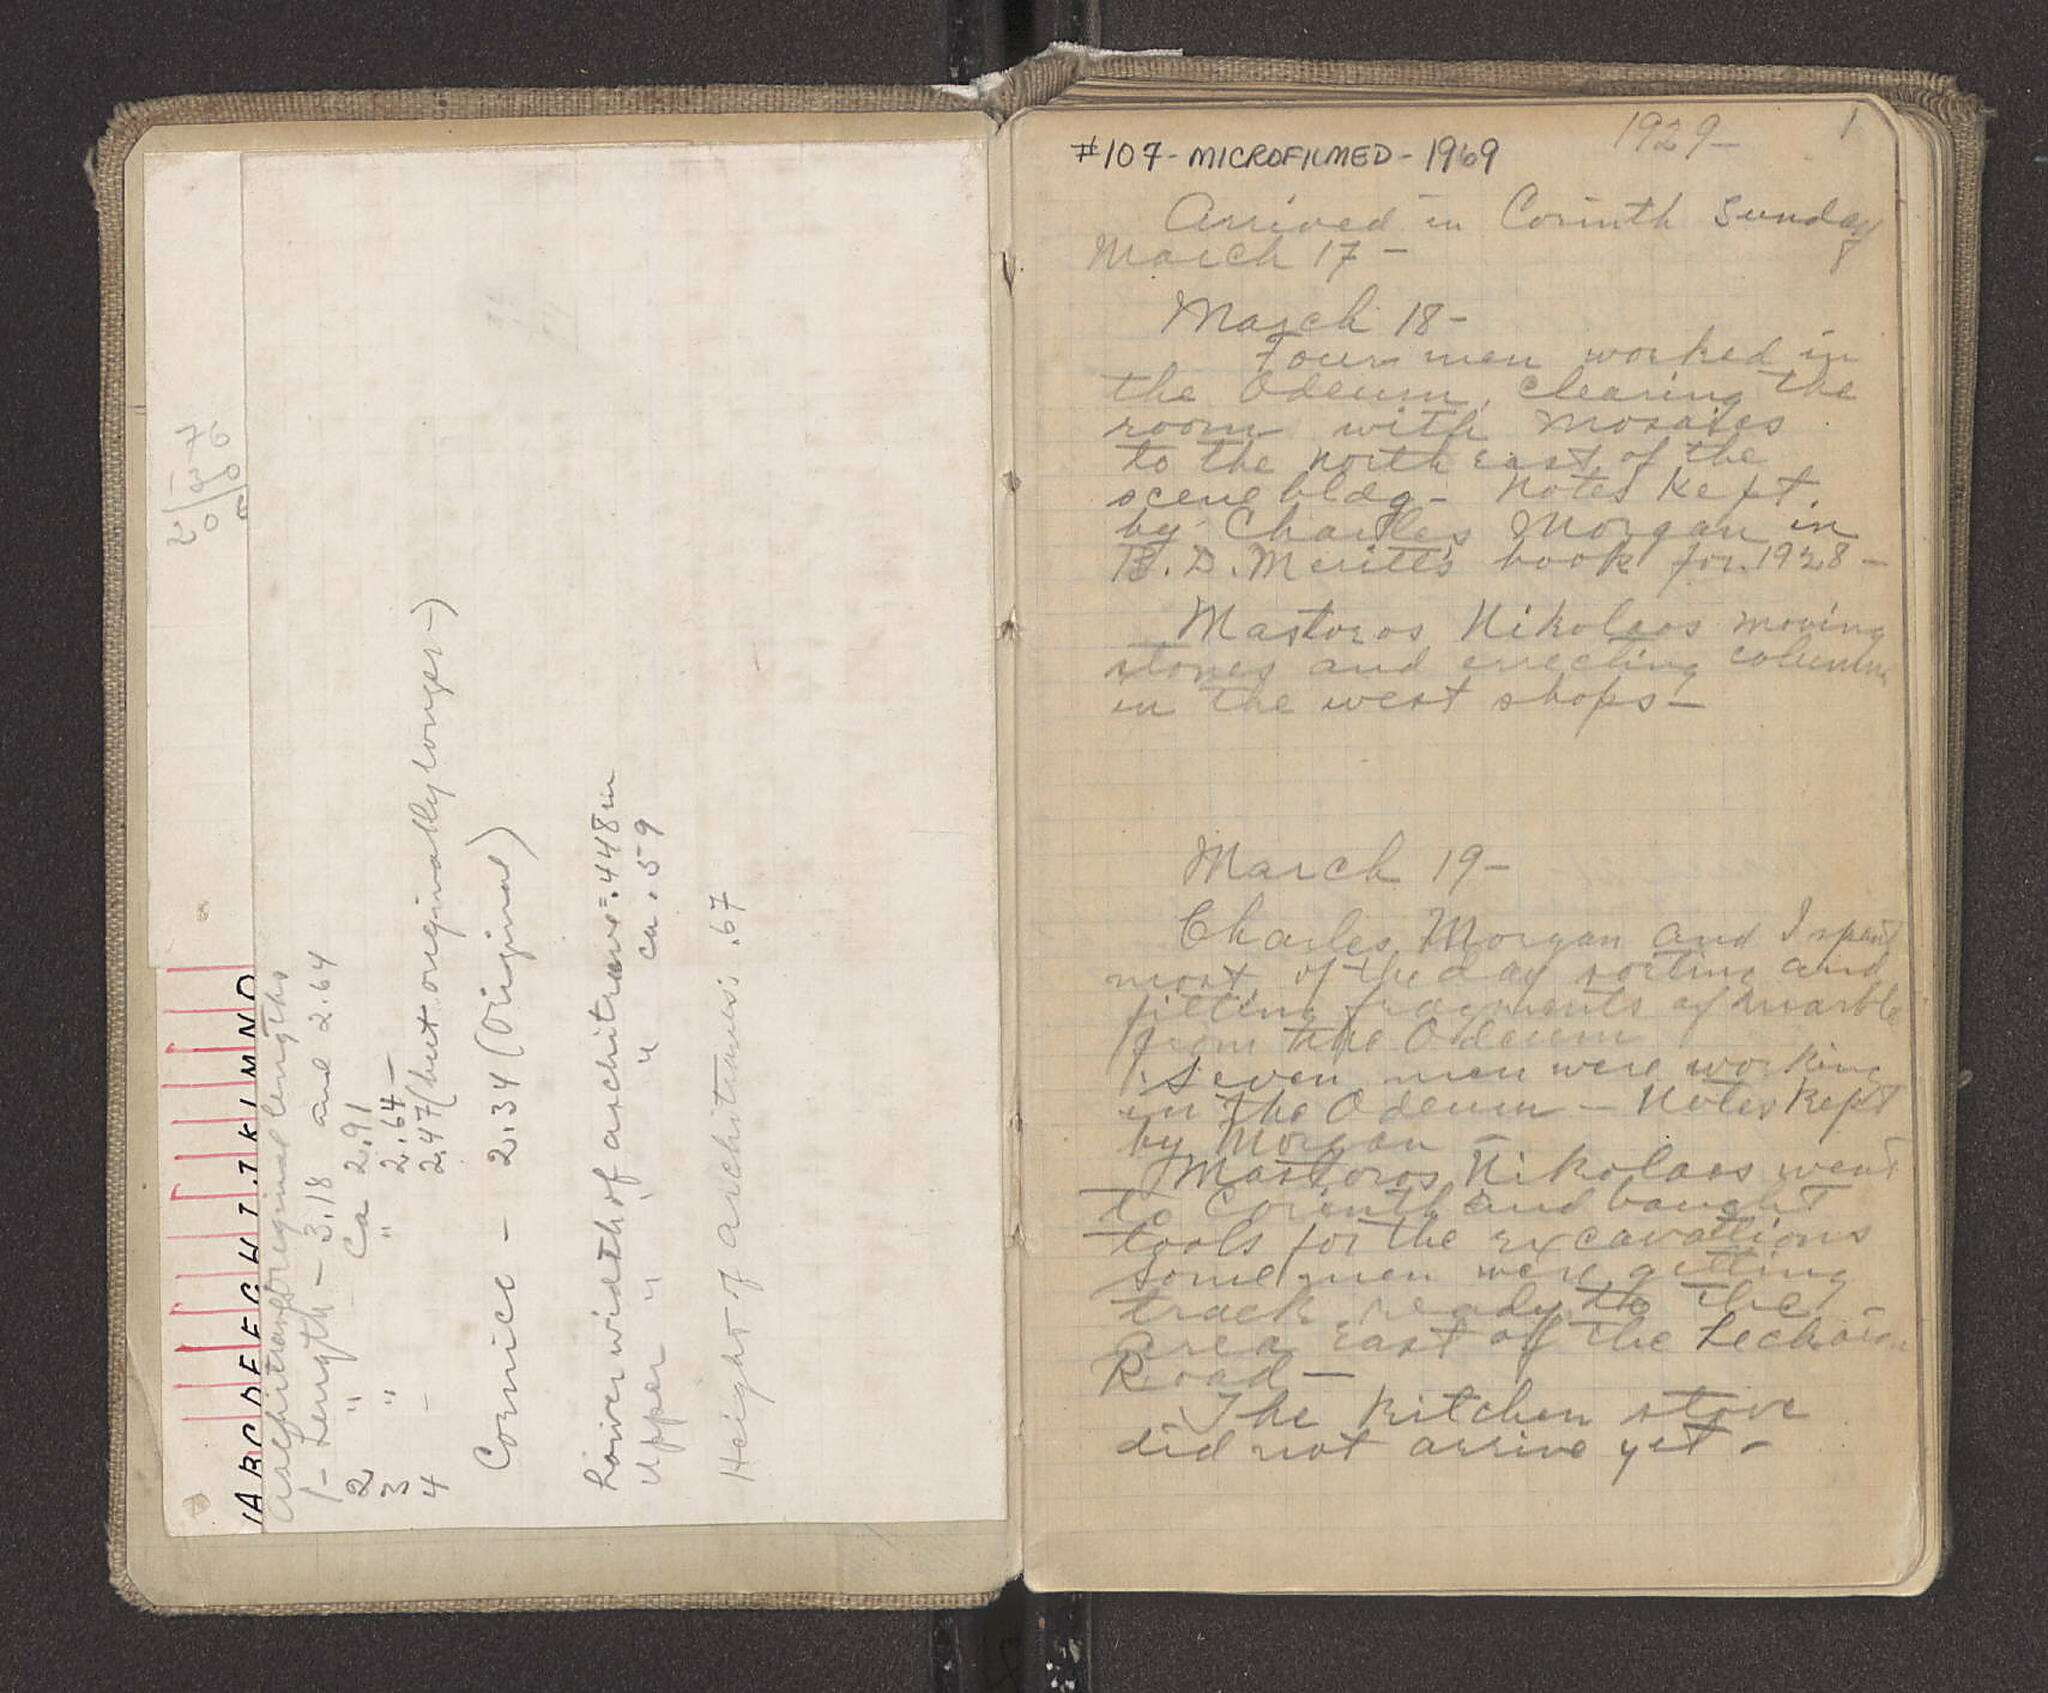 2.34
1 A B C D E F G H I J K L M N O
Architrave original lengths
1 - Length - 3.18 and 2.64
2 " Ca 2.91
3 " " 2.64 -
4 - 2.47 (but originally longer -)
Cornice - 2.34 (original)
Lower width of architrave = .448 m
Upper " " " ca. .59
Height of architraves: .67
#107 - MICROFILMED - 1969
1929 - 1
Arrived in Corinth Sunday
March 17 -
March 18 -
Four men worked in
the Odeum, clearing the
room with mosaics
to the north east of the
scene bldg - Notes kept
by Charles Morgan in
B. D. Meritt's book for 1928 -
Mastoros Nikolaos moving
stones and errecting columns
in the west shops -
March 19 -
Charles Morgan and I spent
most of the day sorting and
fitting fragments of marble
from the Odeum
Seven men were working
in the Odeum - Notes kept
by Morgan -
Mastoros Nikolaos went
to Corinth and bought
tools for the excavations
Some men were getting
track ready to the
area east of the Lechaion
Road -
The kitchen stove
did not arrive yet -